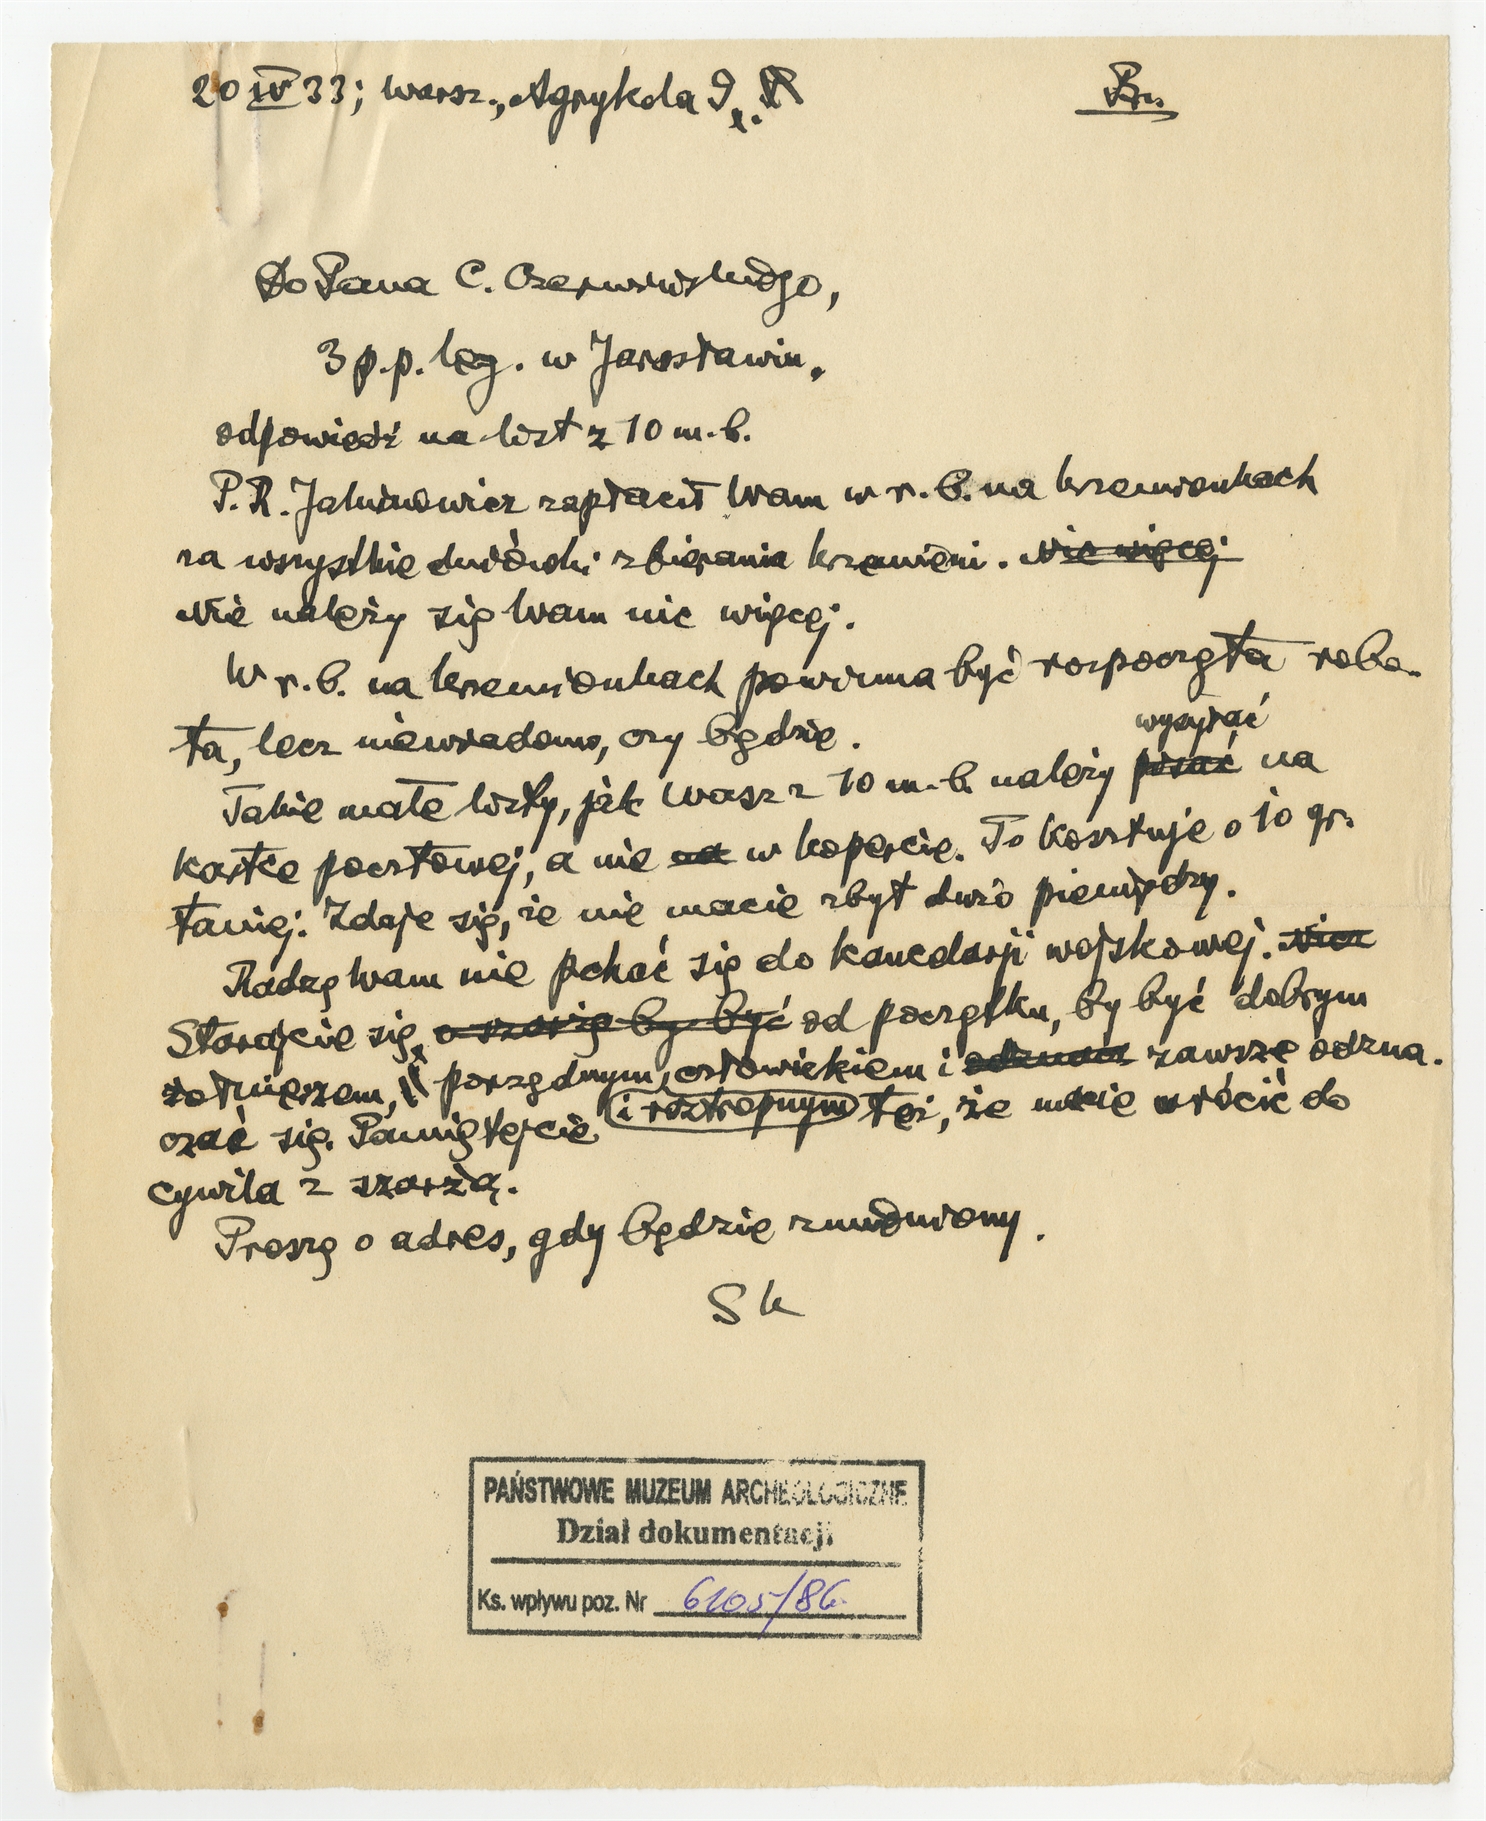 20 IV 33; Warsz., Agrykola 9.
Br.
Do Pana C. Czerwińskiego,
3 p.p. leg. w Jarosławiu.
odpowiedź na list z 10 m.b.
P. R. Jakimowicz zapłacił Wam w r. b. na Krzemionkach
za wszystkie dniówki zbierania krzemieni. Nic więcej
Nie należy się Wam nic więcej.
W r. b. na Krzemionkach powinna być rozpoczęta robo-
ta, lecz niewiadomo, czy będzie.
wysyłać
Takie małe listy, jak Wasz z 10 m.b. należy pisać na
kartce pocztowej, a nie na w kopercie. To kosztuje o 10 gr.
taniej. Zdaje się, że nie macie zbyt dużo pieniędzy.
Radzę Wam nie pchać się do kancelarji wojskowej.
Starajcie się, o szarżę by być od początku, by być dobrym
żołnierzem, porządnym, człowiekiem i zawsze odzna-
czać się. Pamiętajcie i roztropnym też, że macie wrócić do
cywila z szarżą.
Proszę o adres, gdy będzie zmieniony.
Sk
PAŃSTWOWE MUZEUM ARCHEOLOGICZNE
Dział dokumentacji
Ks. wpływu poz. Nr 6105/86